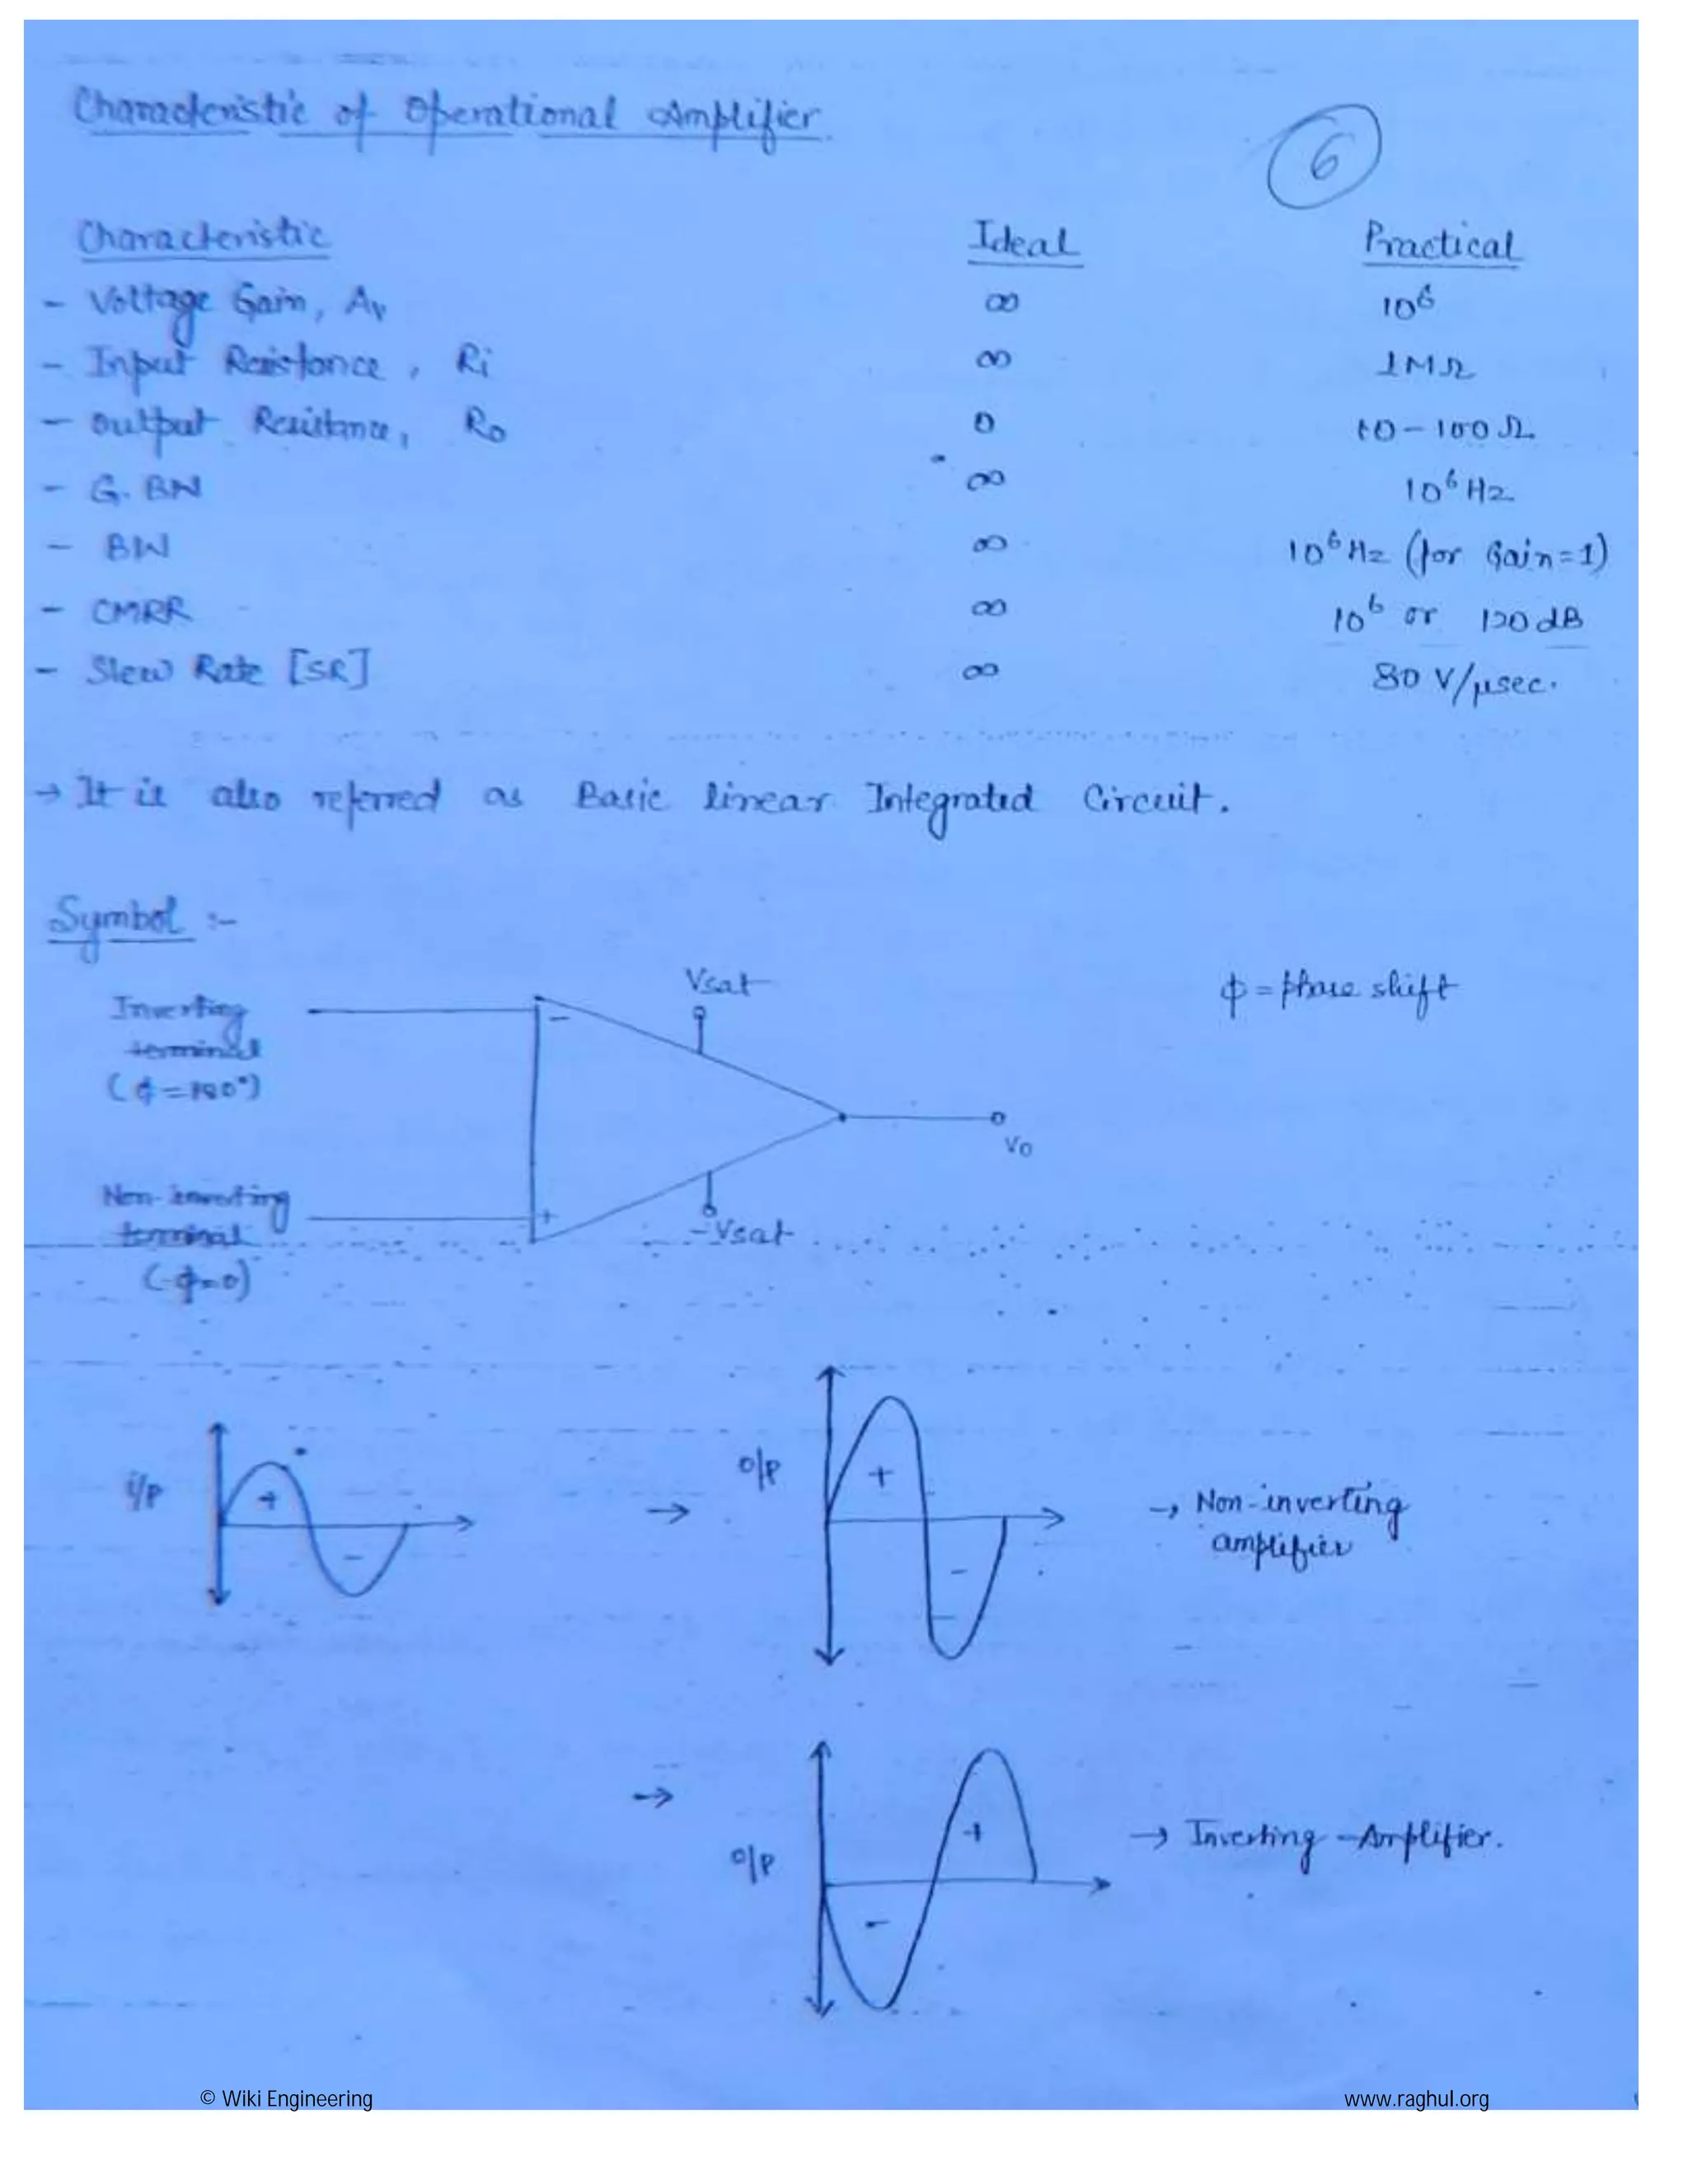 Characteristic of Operational Amplifier.
6
Characteristic Ideal Practical
- Voltage Gain, Av ∞ 10⁶
- Input Resistance, Ri ∞ 1MΩ
- Output Resistance, Ro 0 10-100Ω
- G. BW ∞ 10⁶ Hz
- BW ∞ 10⁶ Hz (for Gain=1)
- CMRR ∞ 10⁶ or 120 dB
- Slew Rate [SR] ∞ 80 V/μsec.
→ It is also referred as Basic linear Integrated Circuit.
Symbol :-
Vsat
ϕ = phase shift
Inverting
terminal
(ϕ=180°)
-
Vo
Non-inverting
terminal
(ϕ=0)
+
-Vsat
i/p + -
→ o/p + - → Non-inverting
amplifier
→ o/p - + → Inverting Amplifier.
© Wiki Engineering www.raghul.org